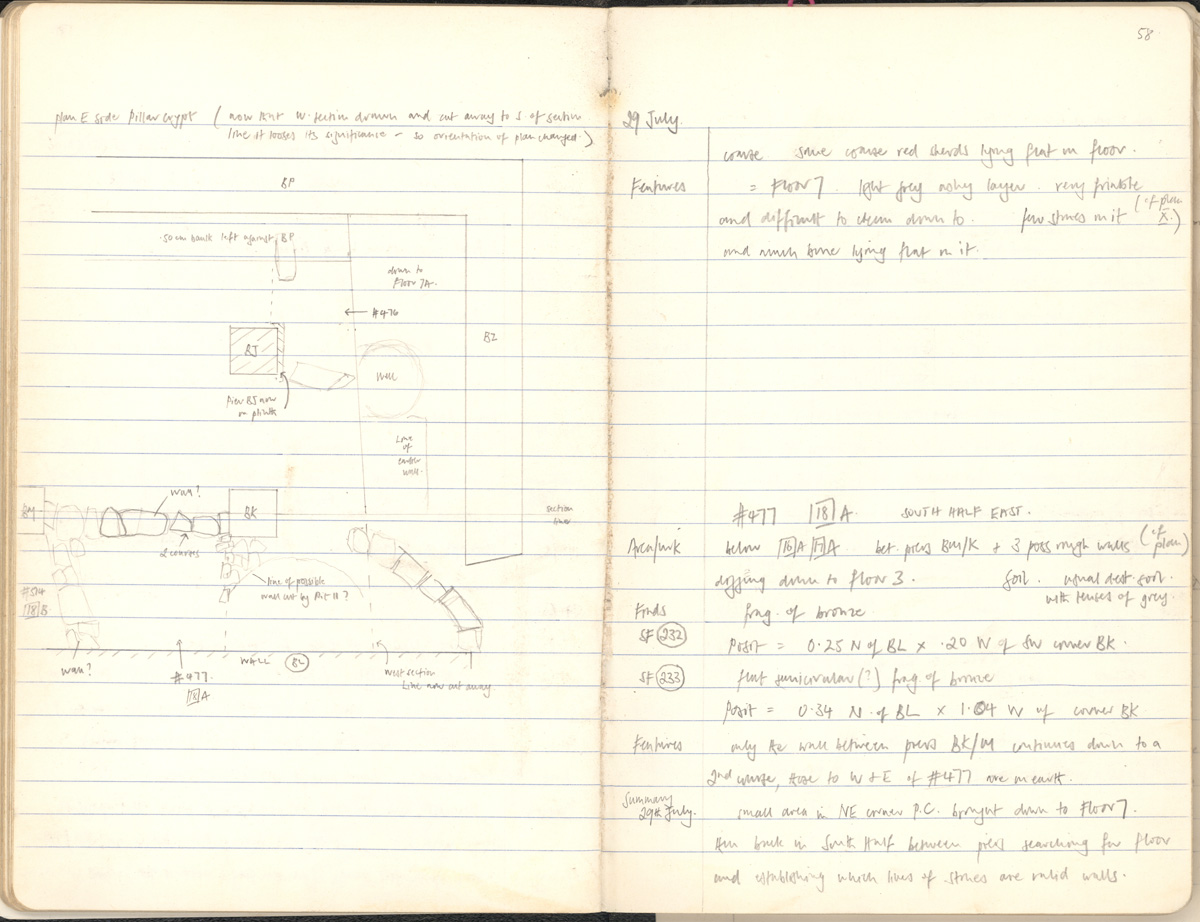 plan E side Pillar Crypt ( now that W. section drawn and cut away to S of section
line it looses its significance – so orientation of plan changed.)
BP
.50 cm baulk left against BP
down to
Floor 7A.
← #476
BZ
BJ
Well
Pier BJ now
on plinth
Line
of
earlier
wall.
wall?
BM
BK
section
line
2 courses
line of possible
wall cut by Pit 11?
#514
18 B
wall?
WALL BL
#477
18 A
West section
Line now cut away
58
29 July.
coarse some coarse red sherds lying flat on floor.
Features = Floor 7. light grey ashy layer. very friable
and difficult to clean down to. few stones in it (cf plan
X.)
and much bone lying flat on it.
#477 18 A. SOUTH HALF EAST.
Area/wk below 16 A 17 A. bet. piers BM/K + 3 poss rough walls (cf
plan)
digging down to floor 3. Soil. usual dest. soil.
with lenses of grey.
Finds frag. of bronze
SF 232 Posit = 0.25 N of BL × .20 W of SW corner BK.
SF 233 flat semicircular (?) frag of bronze
Posit = 0.34 N. of BL × 1.04 W of corner BK
Features only the wall between piers BK/M continues down to a
2nd course, those to W + E of #477 are on earth.
Summary
29th July. small area in NE corner P.C. brought down to Floor 7.
then back in South Half between piers searching for floor
and establishing which lines of stones are valid walls.